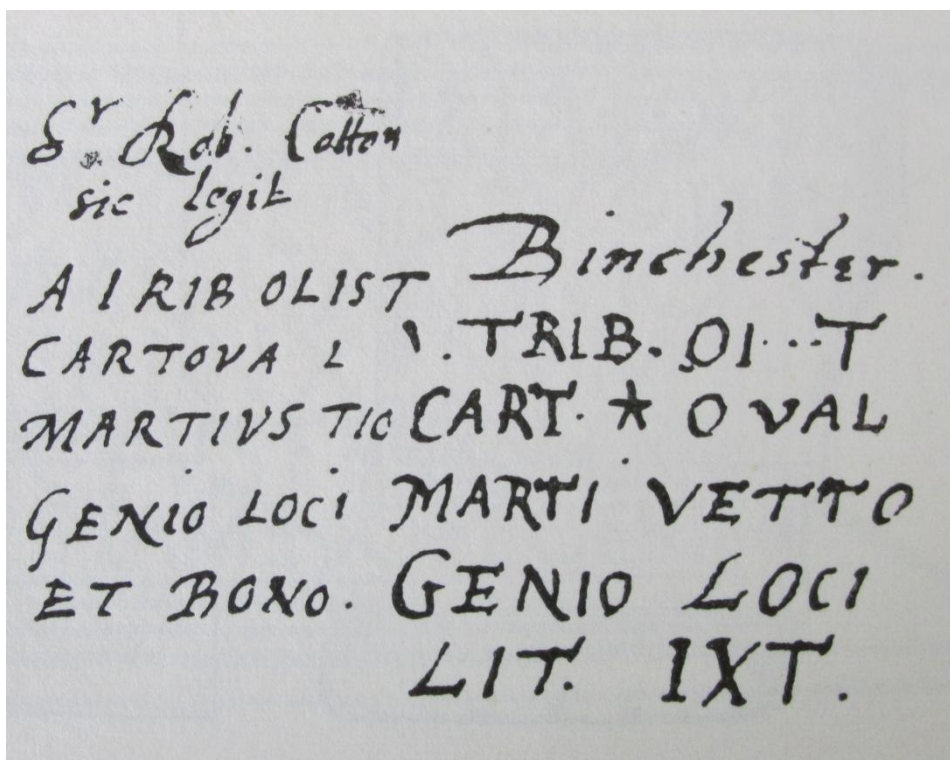 Sr Rob. Cotton
sic legit
A I RIB OLIST
CARTOVA L
MARTIVS TIO
GENIO LOCI
ET BONO.
Binchester.
. TRIB. OI...T
CART. * O VAL
MARTI VETTO
GENIO LOCI
LIT. IXT.